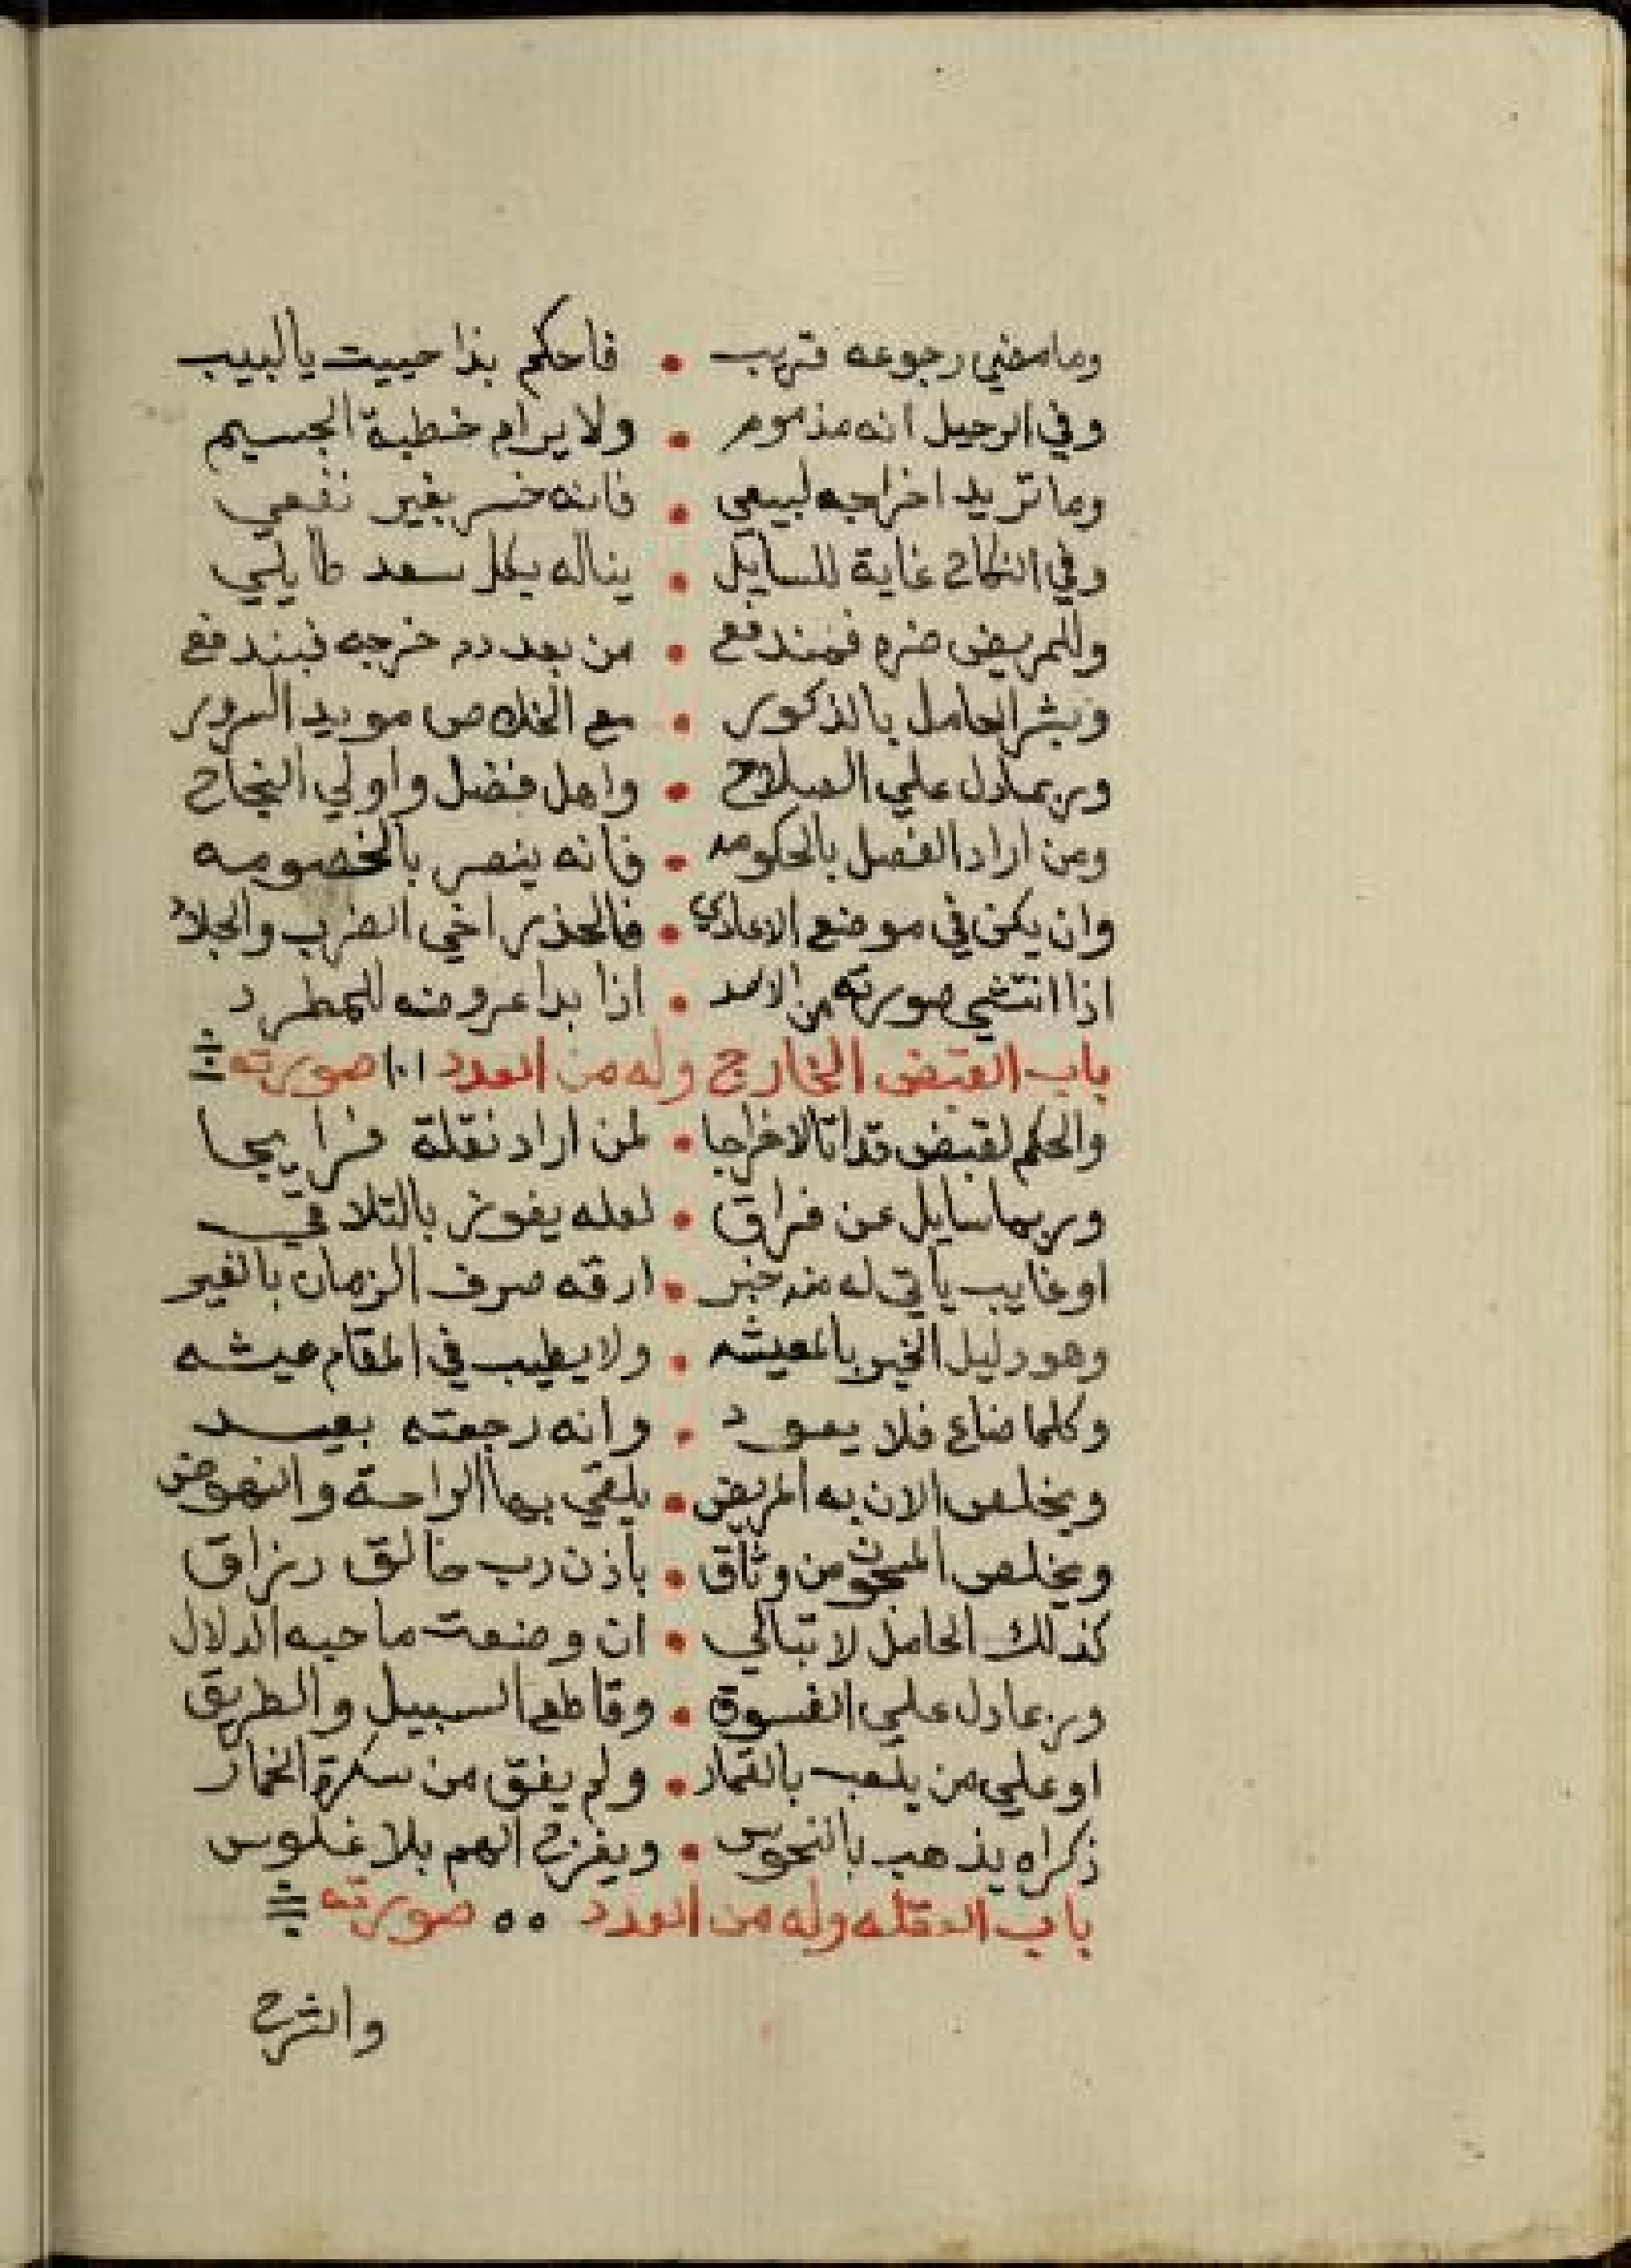 ومامضي رجوعه قريب • فاحكم بذا حييت يالبيب
وفي الرحيل انه مذموم • ولا يرام خطبة الجسيم
وما تريد اخراجه لبيعي • فانه خسر بغير نفعي
وفي النكاح غاية للسايل • يناله بكل سعد طايلي
وللمريض ضره فمندفع • من بعد دم خرجه فيندفع
وبشر الحامل بالذكور • مع الخلاص مويد السرور
وربمادل علي الصلاح • واهل فضل واولي النجاح
ومن اراد الفصل بالحكومه • فانه ينصر بالخصومه
وان يكن في موضع الاعادي • فالحذر اخي الضرب والجلاد
اذا انتشي صورته من الاسد • اذا بدا عروضه للمطرد
باب القبض الخارج وله من العدد ١٠١ صورته
والحكم لقبض قد اتا لاخراجا • لمن اراد نقلة
وربما سايل عن فراق • لعله يفوز بالتلاقي
او غايب ياتي له منه خبر • ارقه صرف الزمان بالغير
وهو دليل الخير بالمعيشه • ولا يطيب في المقام عيشه
وكلما ضاع فلا يعود • وانه رجعته بعيد
ويخلص الان به المريض • يلقي بها الراحة والنهوض
ويخلص المسجون من وثاق • باذن رب خالق رزاق
كذلك الحامل لا تبالي • ان وضعت ماحبه الدلال
وربمادل علي الفسوق • وقاطع السبيل والطريق
او علي من يلعب بالقمار • ولم يفق من سكرة الخمار
ذكراه يذهب بالنحوس • ويفرح الهم بلا غلوس
باب النقله وله من العدد ٥٥ صورته
والشرح